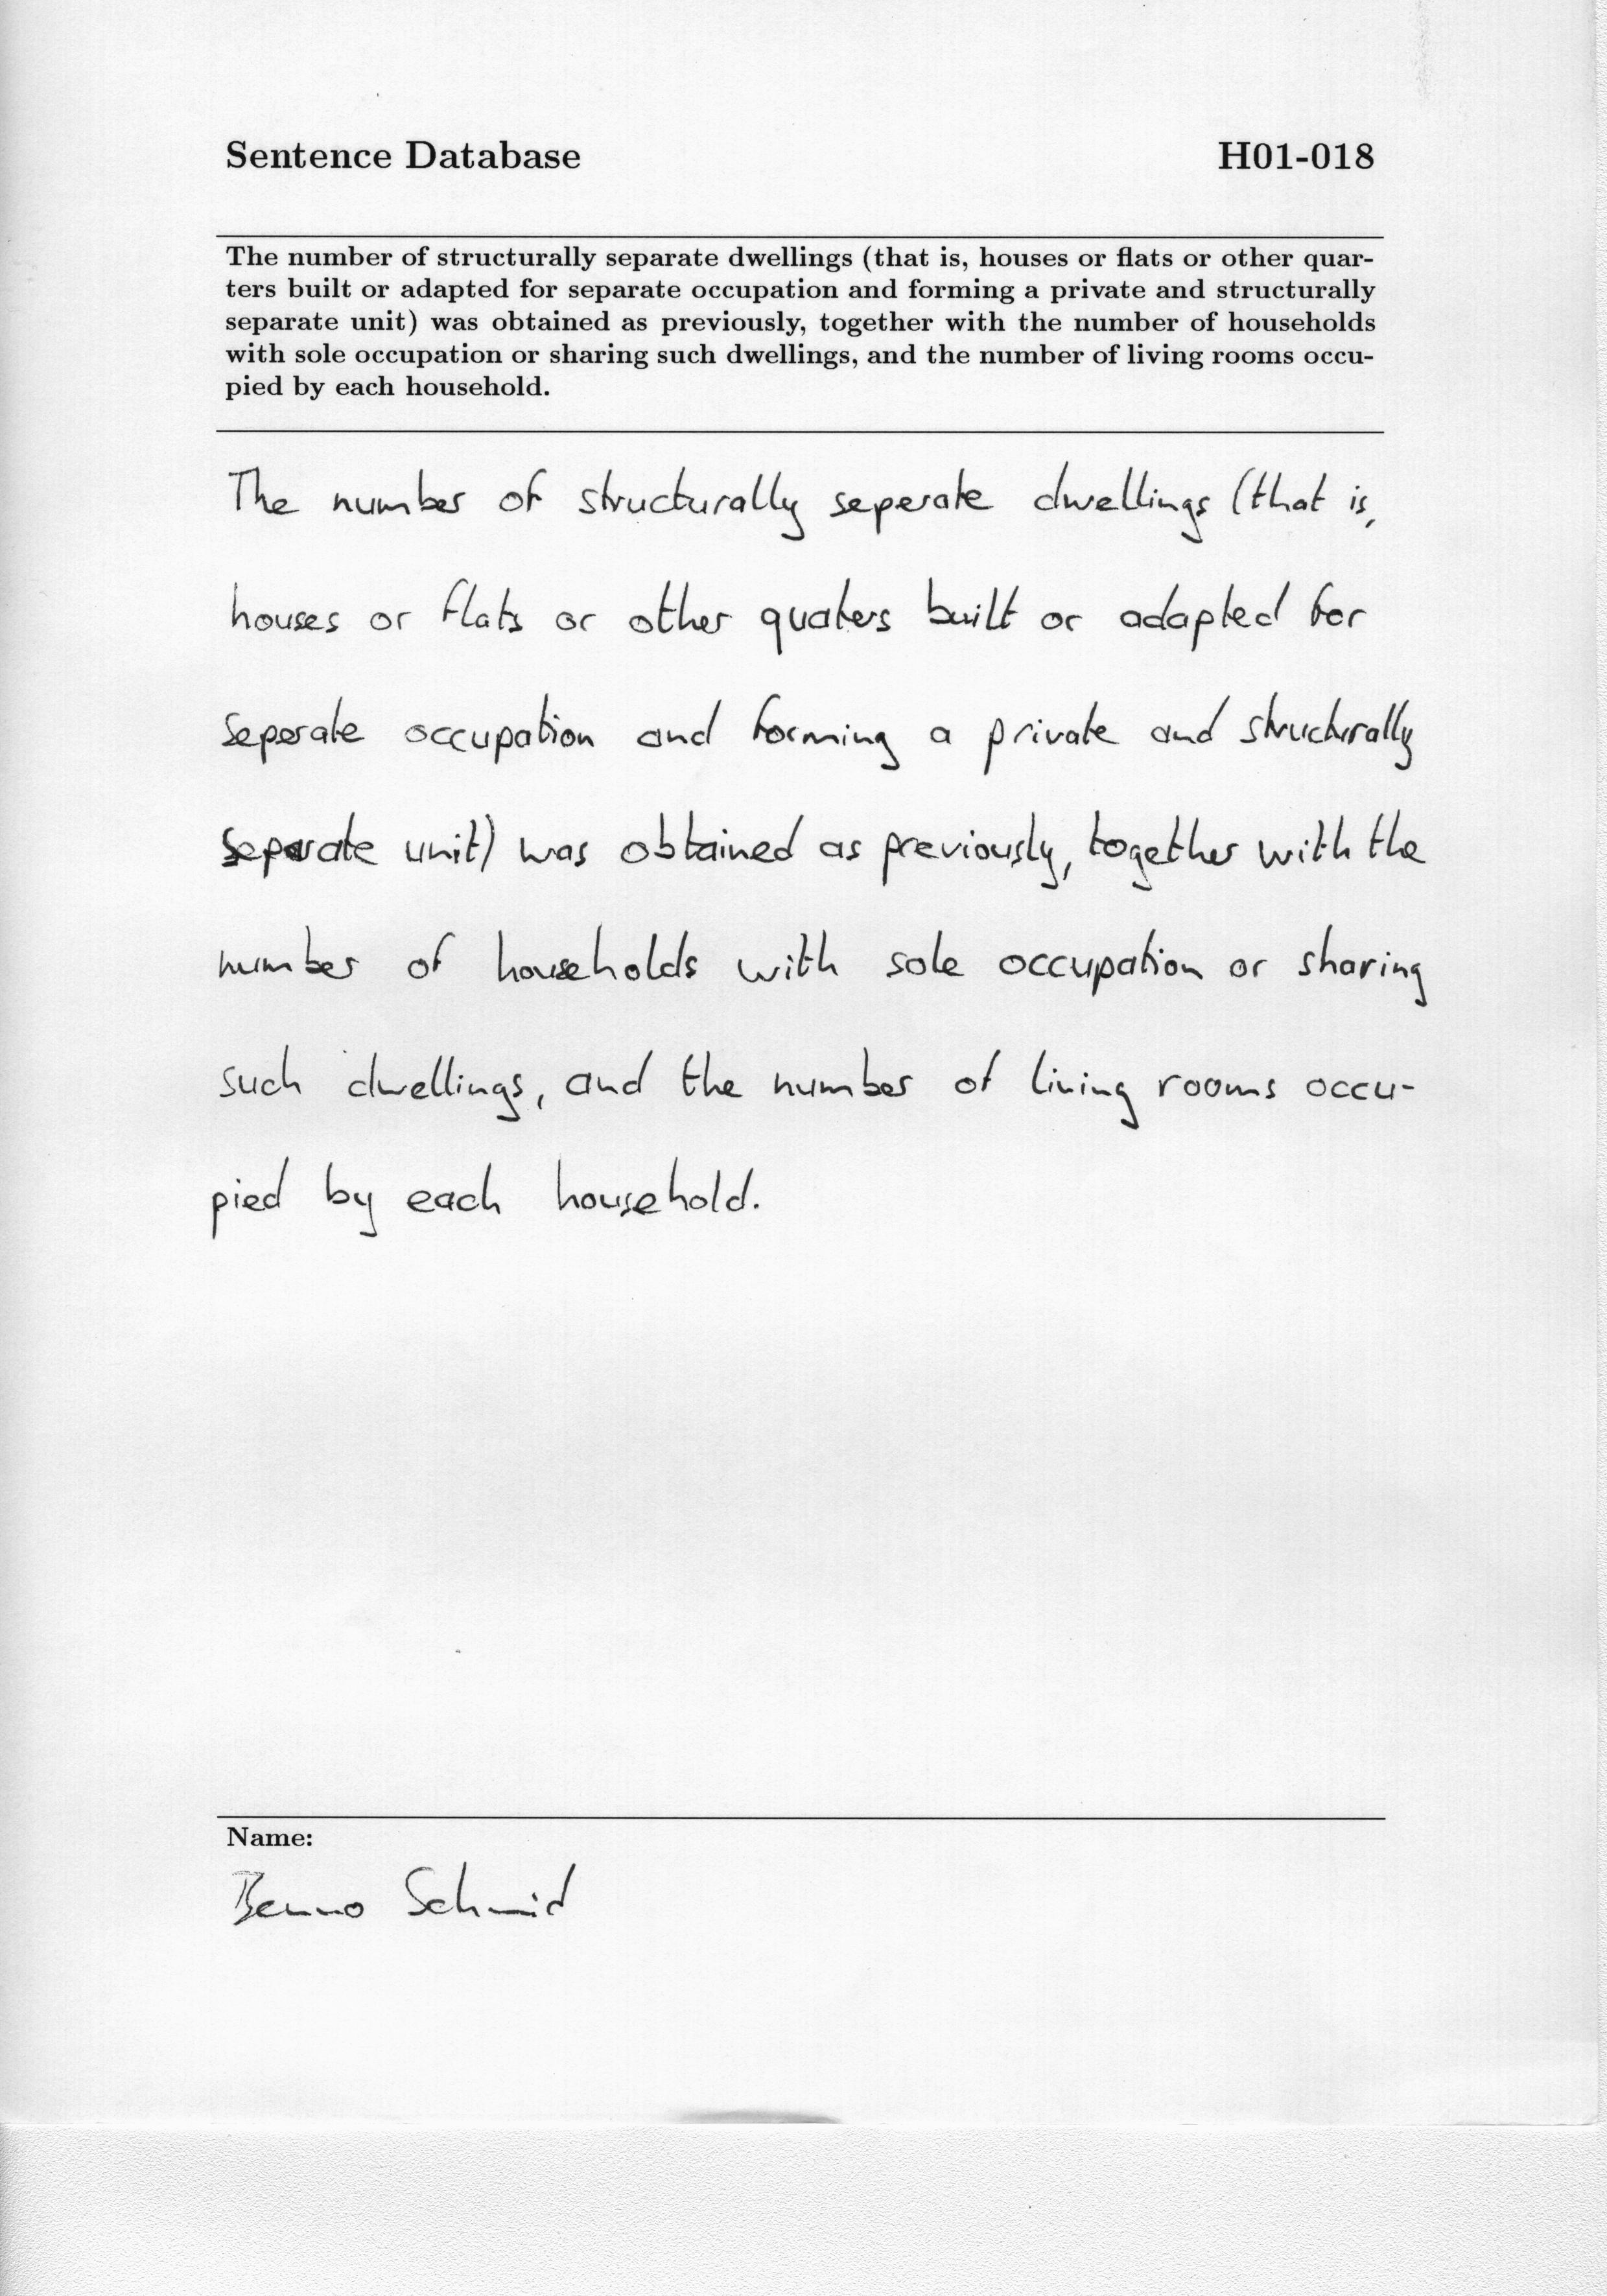 Sentence Database H01-018
The number of structurally separate dwellings (that is, houses or flats or other quar-
ters built or adapted for separate occupation and forming a private and structurally
separate unit) was obtained as previously, together with the number of households
with sole occupation or sharing such dwellings, and the number of living rooms occu-
pied by each household.
The number of structurally seperate dwellings (that is,
houses or flats or other quaters built or adapted for
seperate occupation and forming a private and structurally
separate unit) was obtained as previously, together with the
number of households with sole occupation or sharing
such dwellings, and the number of living rooms occu-
pied by each household.
Name:
Benno Schmid